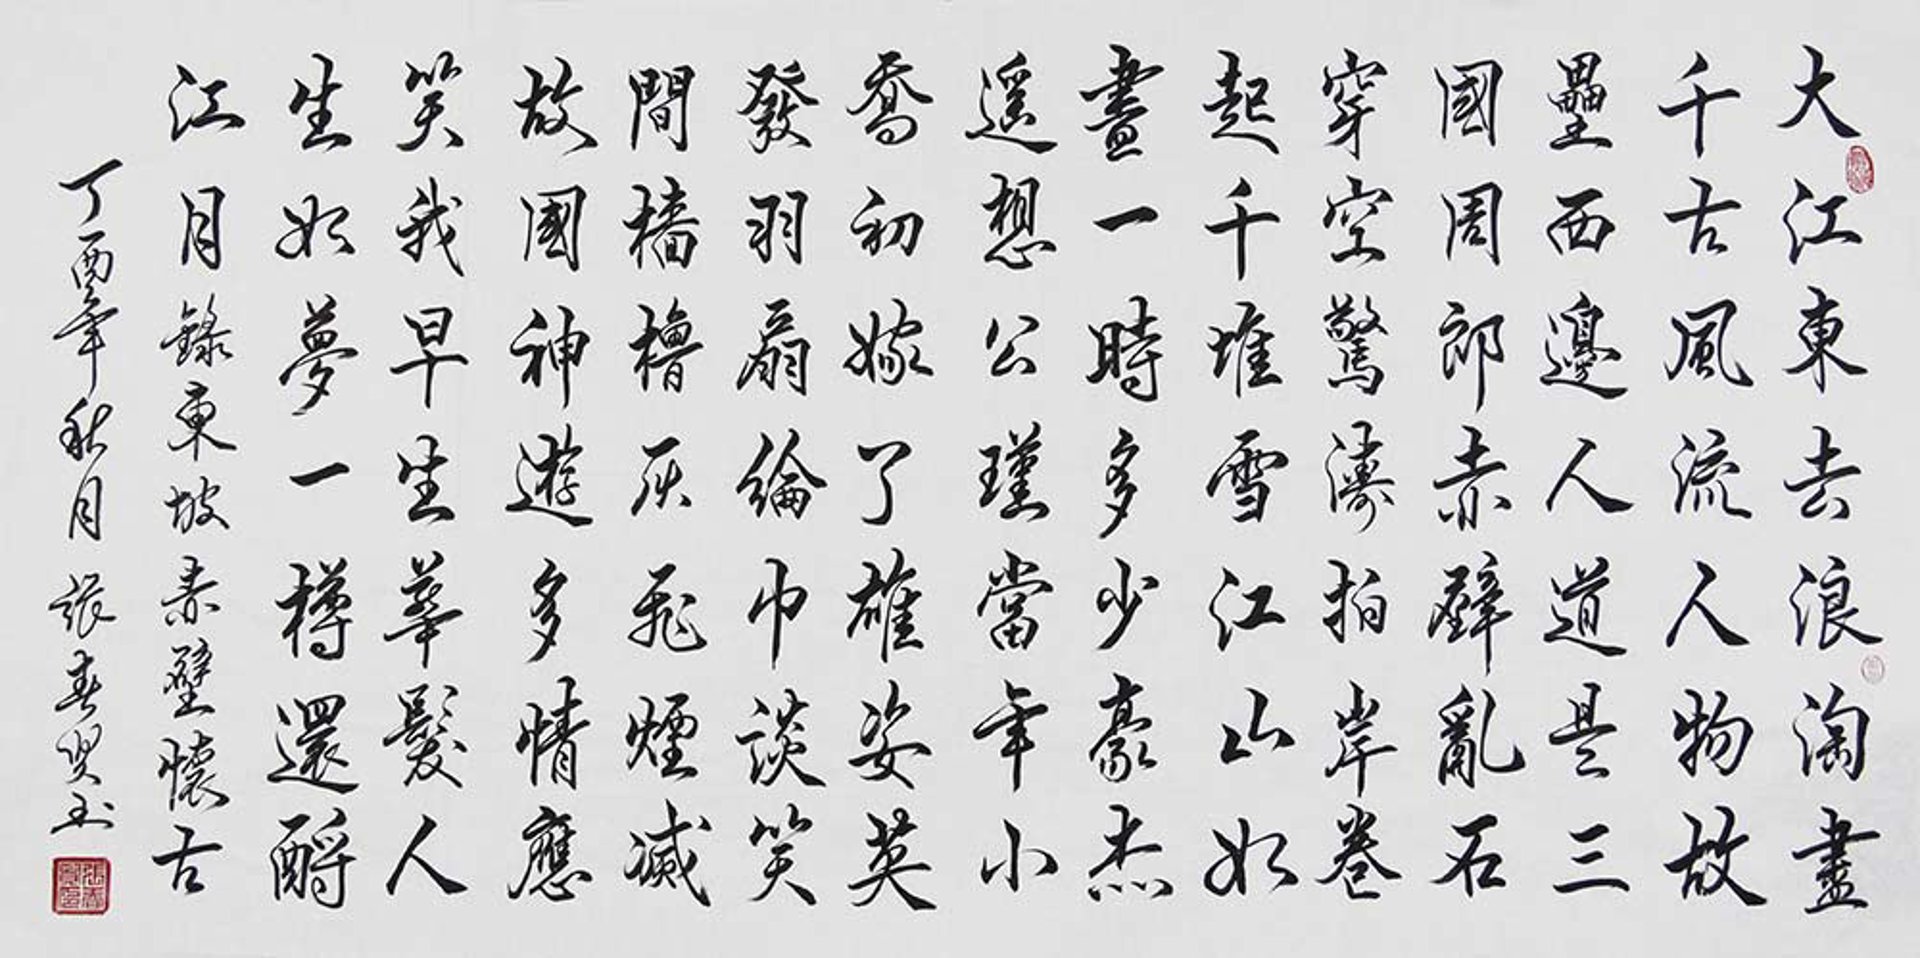 大江東去浪淘盡
千古風流人物故
壘西邊人道是三
國周郎赤壁亂石
穿空驚濤拍岸卷
起千堆雪江山如
畫一時多少豪杰
遥想公瑾當年小
喬初嫁了雄姿英
發羽扇綸巾談笑
間檣櫓灰飛煙滅
故國神遊多情應
笑我早生華髮人
生如夢一樽還酹
江月錄東坡赤壁懷古
丁酉年秋月 張春贤书